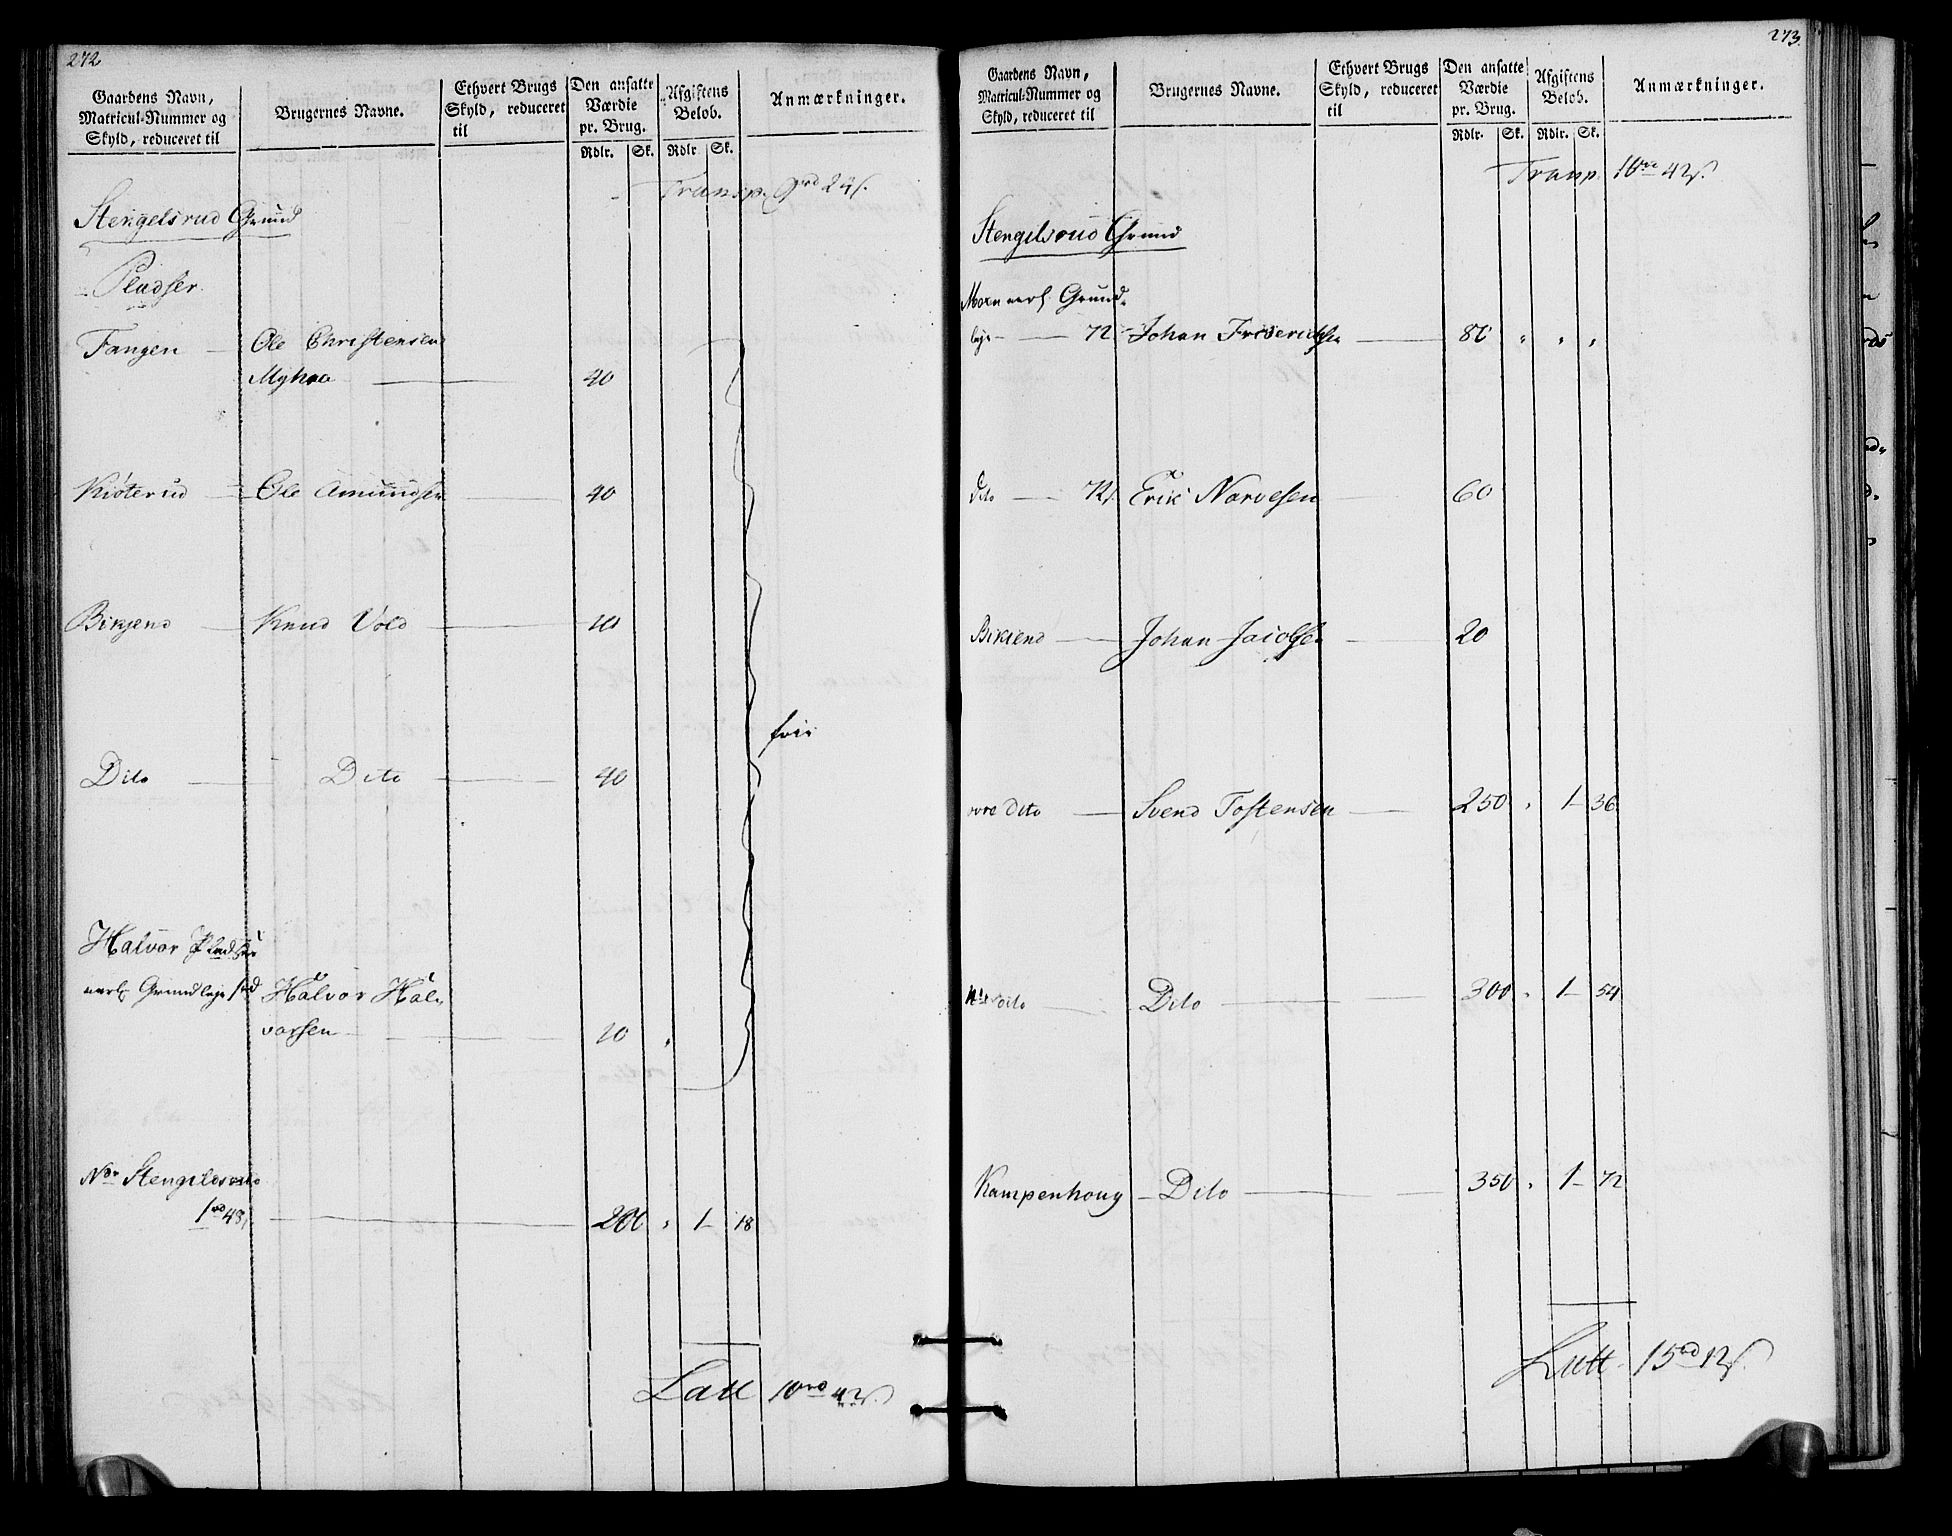 272
Gaardens Navn,
Matricul-Nummer og
Skyld, reduceret til
Brugernes Navne.
Ethvert Brugs
Skyld, reduceret
til
Den ansatte
Værdie
pr. Brug.
Rdlr. Sk.
Afgiftens
Beløb.
Rdlr Sk.
Anmærkninger.
Transp. 9rd 24s.
Stengelsrud Grund
Pladser
Tangen Ole Christensen
Myhra 40
Kiøterud Ole Amundsen 40
Biksend Knud Vold 10
Dito Dito 40
frie
Halvor Pladsen
Grundleje Halvor Hal-
vorsen 10
Nor Stengelsrud
1rd 48s 200 " 1 18
Latt 10rd 42s.
273.
Gaardens Navn,
Matricul-Nummer og
Skyld, reduceret til
Brugernes Navne.
Ethvert Brugs
Skyld, reduceret
til
Den ansatte
Værdie
pr. Brug.
Rdlr. Sk.
Afgiftens
Beløb.
Rdlr. Sk.
Anmærkninger.
Transp. 10rd 42s.
Stengelsrud Grund
Grund-
leje 72 Johan Friderichsen 80 " " "
Dito 72s Erik Narvesen 60
Biksend Johan Jacobsen 20
øvre Dito Svend Tostensen 250 " 1 36
dito Dito 300 " 1 54
Kampenhoug Dito 350 " 1 72
Latt 15rd 12s.